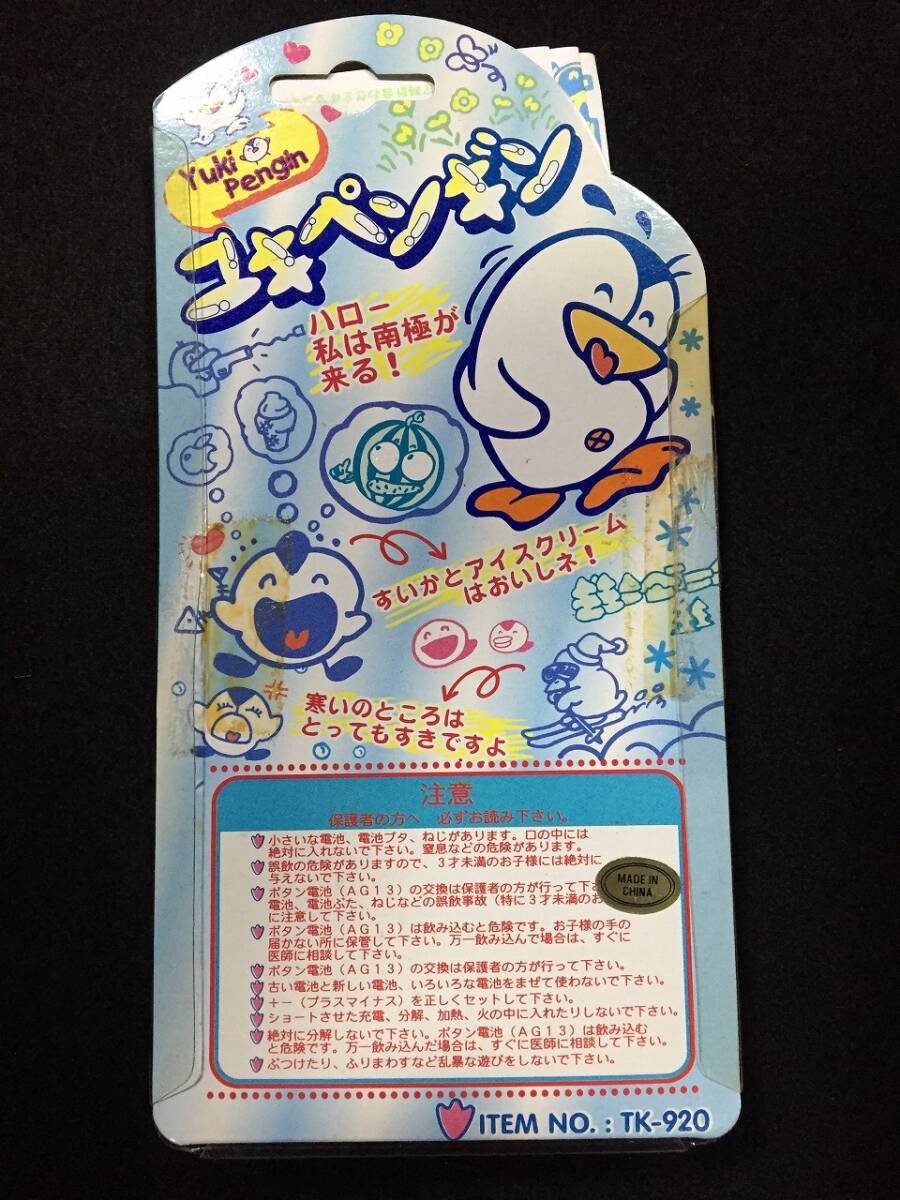 Yuki
Pengin
ユキペンギン
ハロー
私は南極が
来る！
すいかとアイスクリーム
はおいしネ！
寒いのところは
とってもすきですよ
注意
保護者の方へ　必ずお読み下さい。
小さいな電池、電池ブタ、ねじがあります。口の中には
絶対に入れないで下さい。窒息などの危険があります。
誤飲の危険がありますので、３才未満のお子様には絶対に
与えないで下さい。
ボタン電池（ＡＧ１３）の交換は保護者の方が行って下
電池、電池ぶた、ねじなどの誤飲事故（特に３才未満のお
に注意して下さい。
MADE IN
CHINA
ボタン電池（ＡＧ１３）は飲み込むと危険です。お子様の手の
届かない所に保管して下さい。万一飲み込んで場合は、すぐに
医師に相談して下さい。
ボタン電池（ＡＧ１３）の交換は保護者の方が行って下さい。
古い電池と新しい電池、いろいろな電池をまぜて使わないで下さい。
＋－（プラスマイナス）を正しくセットして下さい。
ショートさせた充電、分解、加熱、火の中に入れたりしないで下さい。
絶対に分解しないで下さい。ボタン電池（ＡＧ１３）は飲み込む
と危険です。万一飲み込んだ場合は、すぐに医師に相談して下さい。
ぶつけたり、ふりまわすなど乱暴な遊びをしないで下さい。
ITEM NO. : TK-920